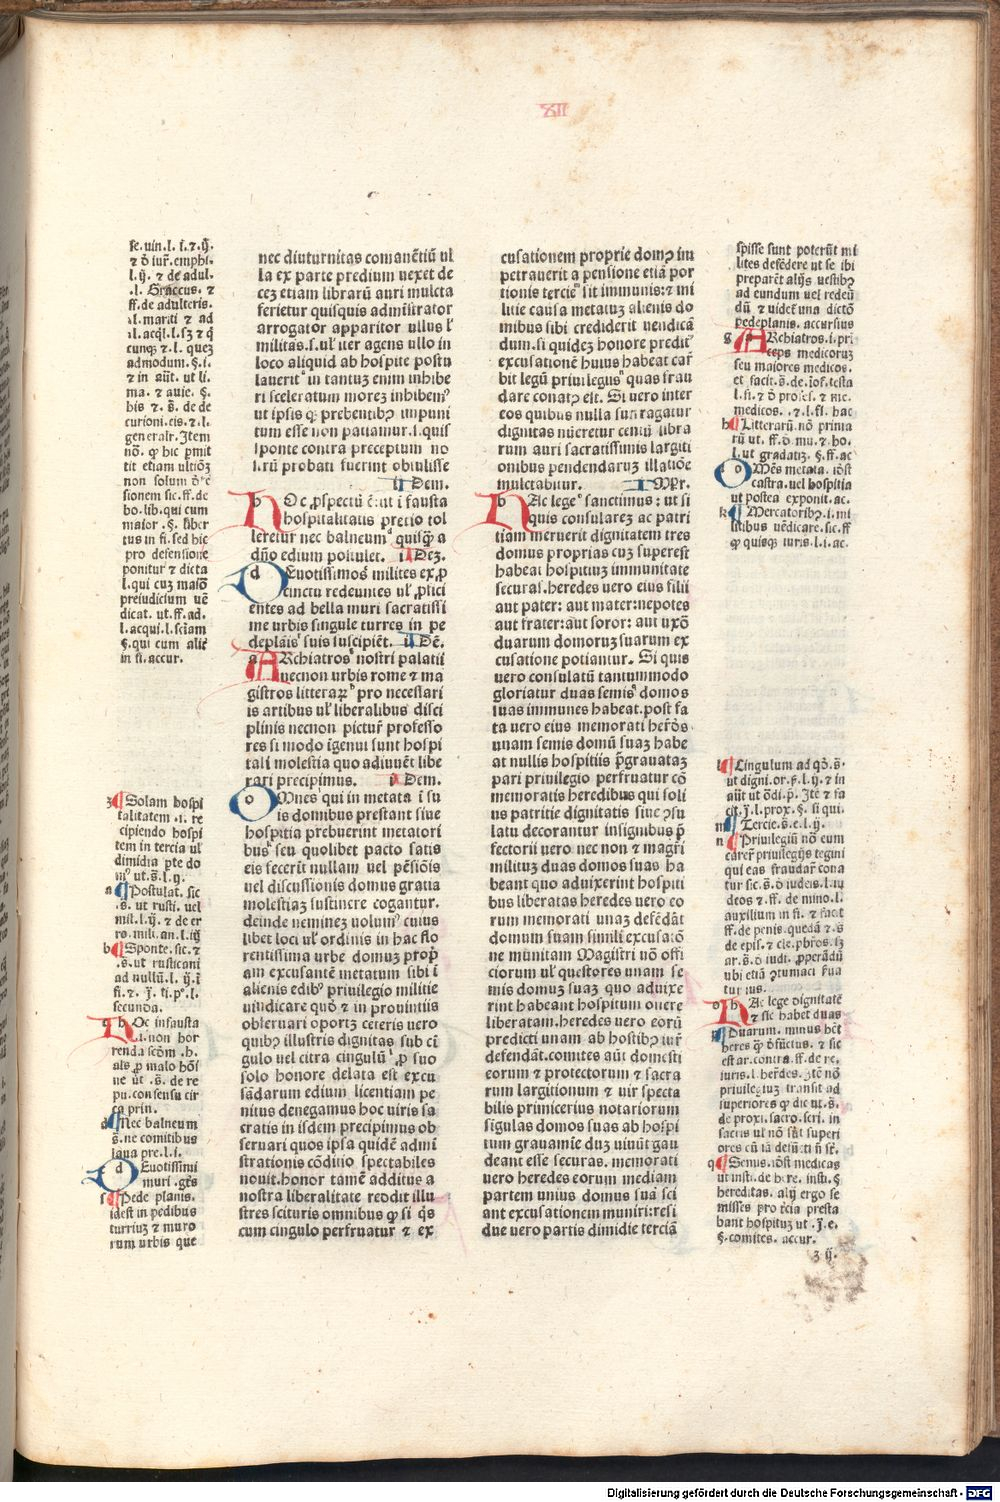 XII
fe. uin. l. f. ⁊. q̃.
⁊ õ iur̃. emphi.
l. ij. ⁊ de adul.
.l. Graccus. ⁊
ff. de adulteris.
.l. mariti ⁊ ad
.l. acqͥ. l. sꝫ ⁊ q̃
cunqꝫ ⁊ l. queꝫ
admodum. §. i.
⁊ in aũt. ut li.
ma. ⁊ auie. §.
his ⁊ .s̃. de de
curioni. eis. ⁊. l.
generalr̃. Item
nõ. ꝙ hic ꝑmit
tit etiam ultiõꝫ
non solum
sionem sic. ff. de
ho. lib. qui cum
maior .§. liber
tus in fi. sed hic
pro defensione
ponitur ⁊ dicta
l. qui cuꝫ maiõ
preiudicium uẽ
dicat. ut. ff. ad.
l. acqui. l. sciam
§. qui cum alit̃
in fi. accur.
ꝫ Solam hospi
talitatem .i. re
cipiendo hospi
tem in tercia ul̃
dimidia ꝑte do
mꝰ ut. s̃. l. ij.
a Postulat. sic
.s̃. ut rusti. uel
mil. l. ij. ⁊ de er
ro. mili. an. l. iij
b Sponte. sic. ⁊
.s̃. ut rusticani
ad nullũ. l. ij. ĩ
fi. ⁊ . j̃. ti. pͥ. l.
secunda.
c hOc infausta
.i. non hor
renda scõm .h.
als̃ ꝑ malo hõi
ne ut .s̃. de re
pu. consensu cir
ca prin.
d Nec balneum
s̃. ne comitibus
laua pre. l. i.
dEuotissimi
muri .gt̃s
f Pede planis.
idest in pedibus
turriuꝫ ⁊ muro
rum urbis que
nec diuturnitas comanẽtiũ ul
la ex parte predium uexet de
ceꝫ etiam libraꝝ auri mulcta
ferietur quisquis admĩstrator
arrogator apparitor ullus ul̃
militãs. s. ul̃ iter agens ullo in
loco aliquid ab hospite postu
lauerit in tantuꝫ enim inhibe
ri sceleratum moreꝫ inhibemꝰ
ut ipsis qꝫ prebentibꝫ impuni
tum esse non patiamur. i. quis
sponte contra preceptum no
strũ probati fuerint obtulisse
Idem.
hOc ꝓspectu ẽ: ut ĩ fausta
hospitalitatis precio tol
leretur nec balneum quisqꝫ a
dño edium postulet. Ideꝫ.
dEuotissimos milites ex ꝓ
cinctu redeuntes ul̃ ꝓfici
entes ad bella muri sacratissi
me urbis singule turres in pe
deplãis suis suscipiẽt. Idẽ.
gARchiatros nostri palatii
necnon urbis rome ⁊ ma
gistros litteraꝝ pro necessari
is artibus ul̃ liberalibus disci
plinis necnon pictur̃ professo
res si modo ĩgenui sunt hospi
tali molestia quo adiuuẽt libe
rari precipimus. Idem.
oMnes qui in metata ĩ su
is domibus prestant siue
hospitia prebuerint metatori
busͥ seu quolibet pacto satis
eis fecerit nullam uel pẽsiõis
uel discussionis domus gratia
molestiaꝫ sustinere cogantur.
deinde nemineꝫ uolumꝰ cuius
libet loci ul̃ ordinis in hac flo
rentissima urbe domuꝫ propͥ
am excusantẽ metatum sibi ĩ
alienis edibͥ priuilegio militie
uindicare quõ ⁊ in prouintiis
obseruari oportꝫ ceteris uero
quibꝫ illustris dignitas sub cĩ
gulo uel citra cingulũ ꝓ suo
solo honore delata est excu
sãdarum edium licentiam pe
nitus denegamus hoc uiris sa
cratis in isdem precipimus ob
seruari quos ipsa quidẽ admĩ
strationis cõditio spectabiles
nouit. honor tamẽ additus a
nostra liberalitate reddit illu
stres scituris omnibus ꝙ si q̃s
cum cingulo perfruatur ⁊ ex
cusationem proprie domꝫ im
petrauerit a pensione etiã por
tionis tercie sit immunis: ⁊ mi
litie causa metatuꝫ alienis do
mibus sibi crediderit uendicã
dum. si quideꝫ honore predit
excusatione huius habeat car
bit legũ priuilegiis quas frau
dare conatꝫ est. Si uero inter
eos quibus nulla suffragatur
dignitas nũeretur centũ libra
rum auri sacratissimis largiti
onibus pendendaruꝫ illatiõe
mulctabitur. IMPr.
hAc lege sanctimus: ut si
quis consulareꝫ ac patri
tiam meruerit dignitatem tres
domus proprias cuꝫ superest
habeat hospituꝫ immunitate
securas. heredes uero eius filii
aut pater: aut mater: nepotes
aut frater: aut soror: aut uxõ
duarum domoruꝫ suarum ex
cusatione potiantur. Si quis
uero consulatũ tantummodo
gloriatur duas semisͥ domos
suas immunes habeat. post fa
ta uero eius memorati her̃os
unam semis domũ suaꝫ habe
at nullis hospitiis p̃grauataꝫ
pari priuilegio perfruatur cõ
memoratis heredibus qui soli
us patritie dignitatis siue ꝯsu
latu decorantur insignibus p̃
fectorii uero nec non ⁊ magr̃i
milituꝫ duas domos suas ha
beant quo aduixerint hospiti
bus liberatas heredes uero eo
rum memorati unaꝫ defẽdãt
domum suam simili excusatõ
ne munitam Magistri uõ offi
ciorum ul̃ questores unam se
mis domuꝫ suaꝫ quo aduixe
rint habeant hospitum onere
liberatam. heredes uero eorũ
predicti unam ab hostibꝫ iur̃
defendãt. comites aũt domesti
eorum ⁊ protectorum ⁊ sacra
rum largitionum ⁊ uir specta
bilis primicerius notariorum
sĩgulas domos suas ab hospi
tum grauamĩe duꝫ uiuũt gau
deant esse securas. memorati
uero heredes eorum mediam
partem unius domus suã sci
ant excusationem muniri: resi
due uero partis dimidie terciã
spisse sunt poterũt mi
lites defẽdere ut se ibi
preparẽt alijs uestibꝫ
ad eundum uel redeũ
dũ ⁊ uidet̃ una dictõ
pedeplanis. accursius
g aRchiatros. i. pri
ceps medicoruꝫ
seu maiores medicos.
et facit. s̃. de. ios̃. testa
l. fi. ⁊ õ profes̃. ⁊ me.
medicos. . ⁊. l. fi. hac
h Litterarũ. nõ prima
rũ ut. ff. õ mu. ⁊ ho.
l. ut gradatiꝫ. §. ff. ac
oMẽs metata. idẽst
castra. uel hospitia
ut postea exponit. ac.
k Mercatoribꝫ. i. mi
litibus uẽdicare. sic. ff
ꝙ quisqꝫ iuris. l. i. ac.
l Cingulum ad qõ. s̃.
ut digni. or. p̃. l. ij. ⁊ in
aũt ut õdi. p̃. Ite ⁊ fa
cit. j̃. l. prox. §. si qui.
m Tercie. s̃. e. l. ij.
n Priuilegiũ nõ eum
carer̃ priuilegijs tegini
qui eas fraudar̃ cona
tur sic. s̃. õ iudeis. l. iu
deos ⁊ ff. de mino. l.
auxilium in fi. ⁊ facit
ff. de penis. quedã ⁊ s̃
de epis. ⁊ cle. pb̃ros. sꝫ
ar. s̃. õ iudi. ꝓperãdũ
ubi etiã ꝯtumaci ẽua
tur ius.
o hAc lege dignitatẽ
⁊ sic habet duas
p Duarum. minus hẽt
heres q̃ defũctus. ⁊ sic
est ar. contra. ff. de re.
iuris. l. her̃des. Itẽ nõ
priuilegiuꝫ transit ad
superiores ꝙ dic ut. s̃.
de proxi. sacro. scri. in
sacris ul̃ nõ sũt superi
ores cũ ia defũ. ti ñ st̃.
q Semis. idẽst medicas
ut insti. de here. insti. §
hereditas. alij ergo se
misses pro tercia presta
bant hospituꝫ ut . j̃. e.
§. comites. accur.
ꝫ ij.
Digitalisierung gefördert durch die Deutsche Forschungsgemeinschaft - DFG